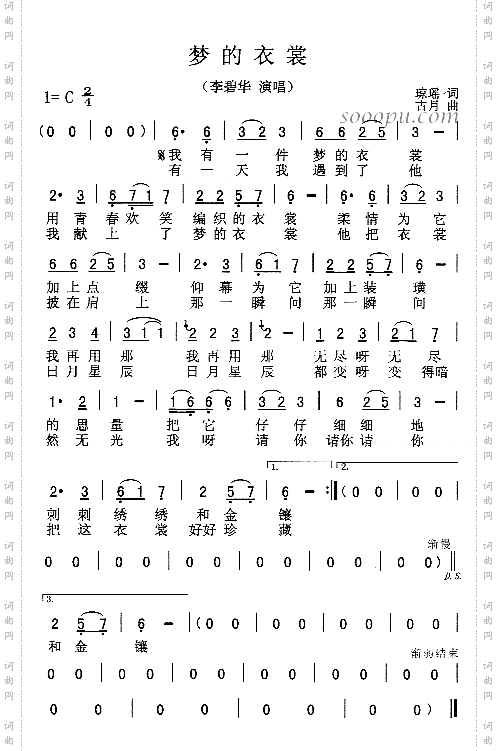 梦的衣裳
（李碧华 演唱）
1=C 2/4
琼瑶 词
古月 曲
sooopu.com
(0 0 | 0 0) | 6· 6 | 3 2 3 | 6 6 2 5 | 3 - |
我有一件梦的衣裳
有一天我遇到了他
2· 3 | 6 7 1 7 | 6 6 2 6 | 3 - | 6· 6 | 3 2 3 |
用青春欢笑编织的衣裳 柔情为它
我献上了梦的衣裳 他把衣裳
6 6 2 5 | 3 - | 2· 2 | 6 1 6 | 2 2 5 7 | 6 - |
加上点缀 仰幕为它加上装璜
披在肩上 那一瞬间那一瞬间
2 3 4 | 3 1 1 | 1 2 2 | 3 1 1 | 3 2 2 | 2 1 7 1 |
我再用那 我再用那 无尽呀无尽
日月星辰 日月星辰 都变呀变得暗
0 1 2· | 3 - | 1 6 6 6 | 3 2 3 | 6 2 5 | 3 - |
的思量 把它仔仔细细地
然无光 我呀请你请你请你
1.
2.
2· 3 | 6 1 1 | 2 5 7 | 6 - :|| (0 0 | 0 0 |
刺刺绣绣和金镶
把这衣裳好好珍藏
渐慢
0 0 | 0 0 | 0 0 | 0 0 | 0 0 | 0 0) ||
D.S.
3.
2 5 7 | 6 - | (0 0 | 0 0 | 0 0 | 0 0 |
和金镶
渐弱结束
0 0 | 0 0 | 0 0 | 0 0 | 0 0 | 0 0 |
0 0 | 0 0 | 0 0 | 0 0 | 0 0 | 0 0) ||
词曲网